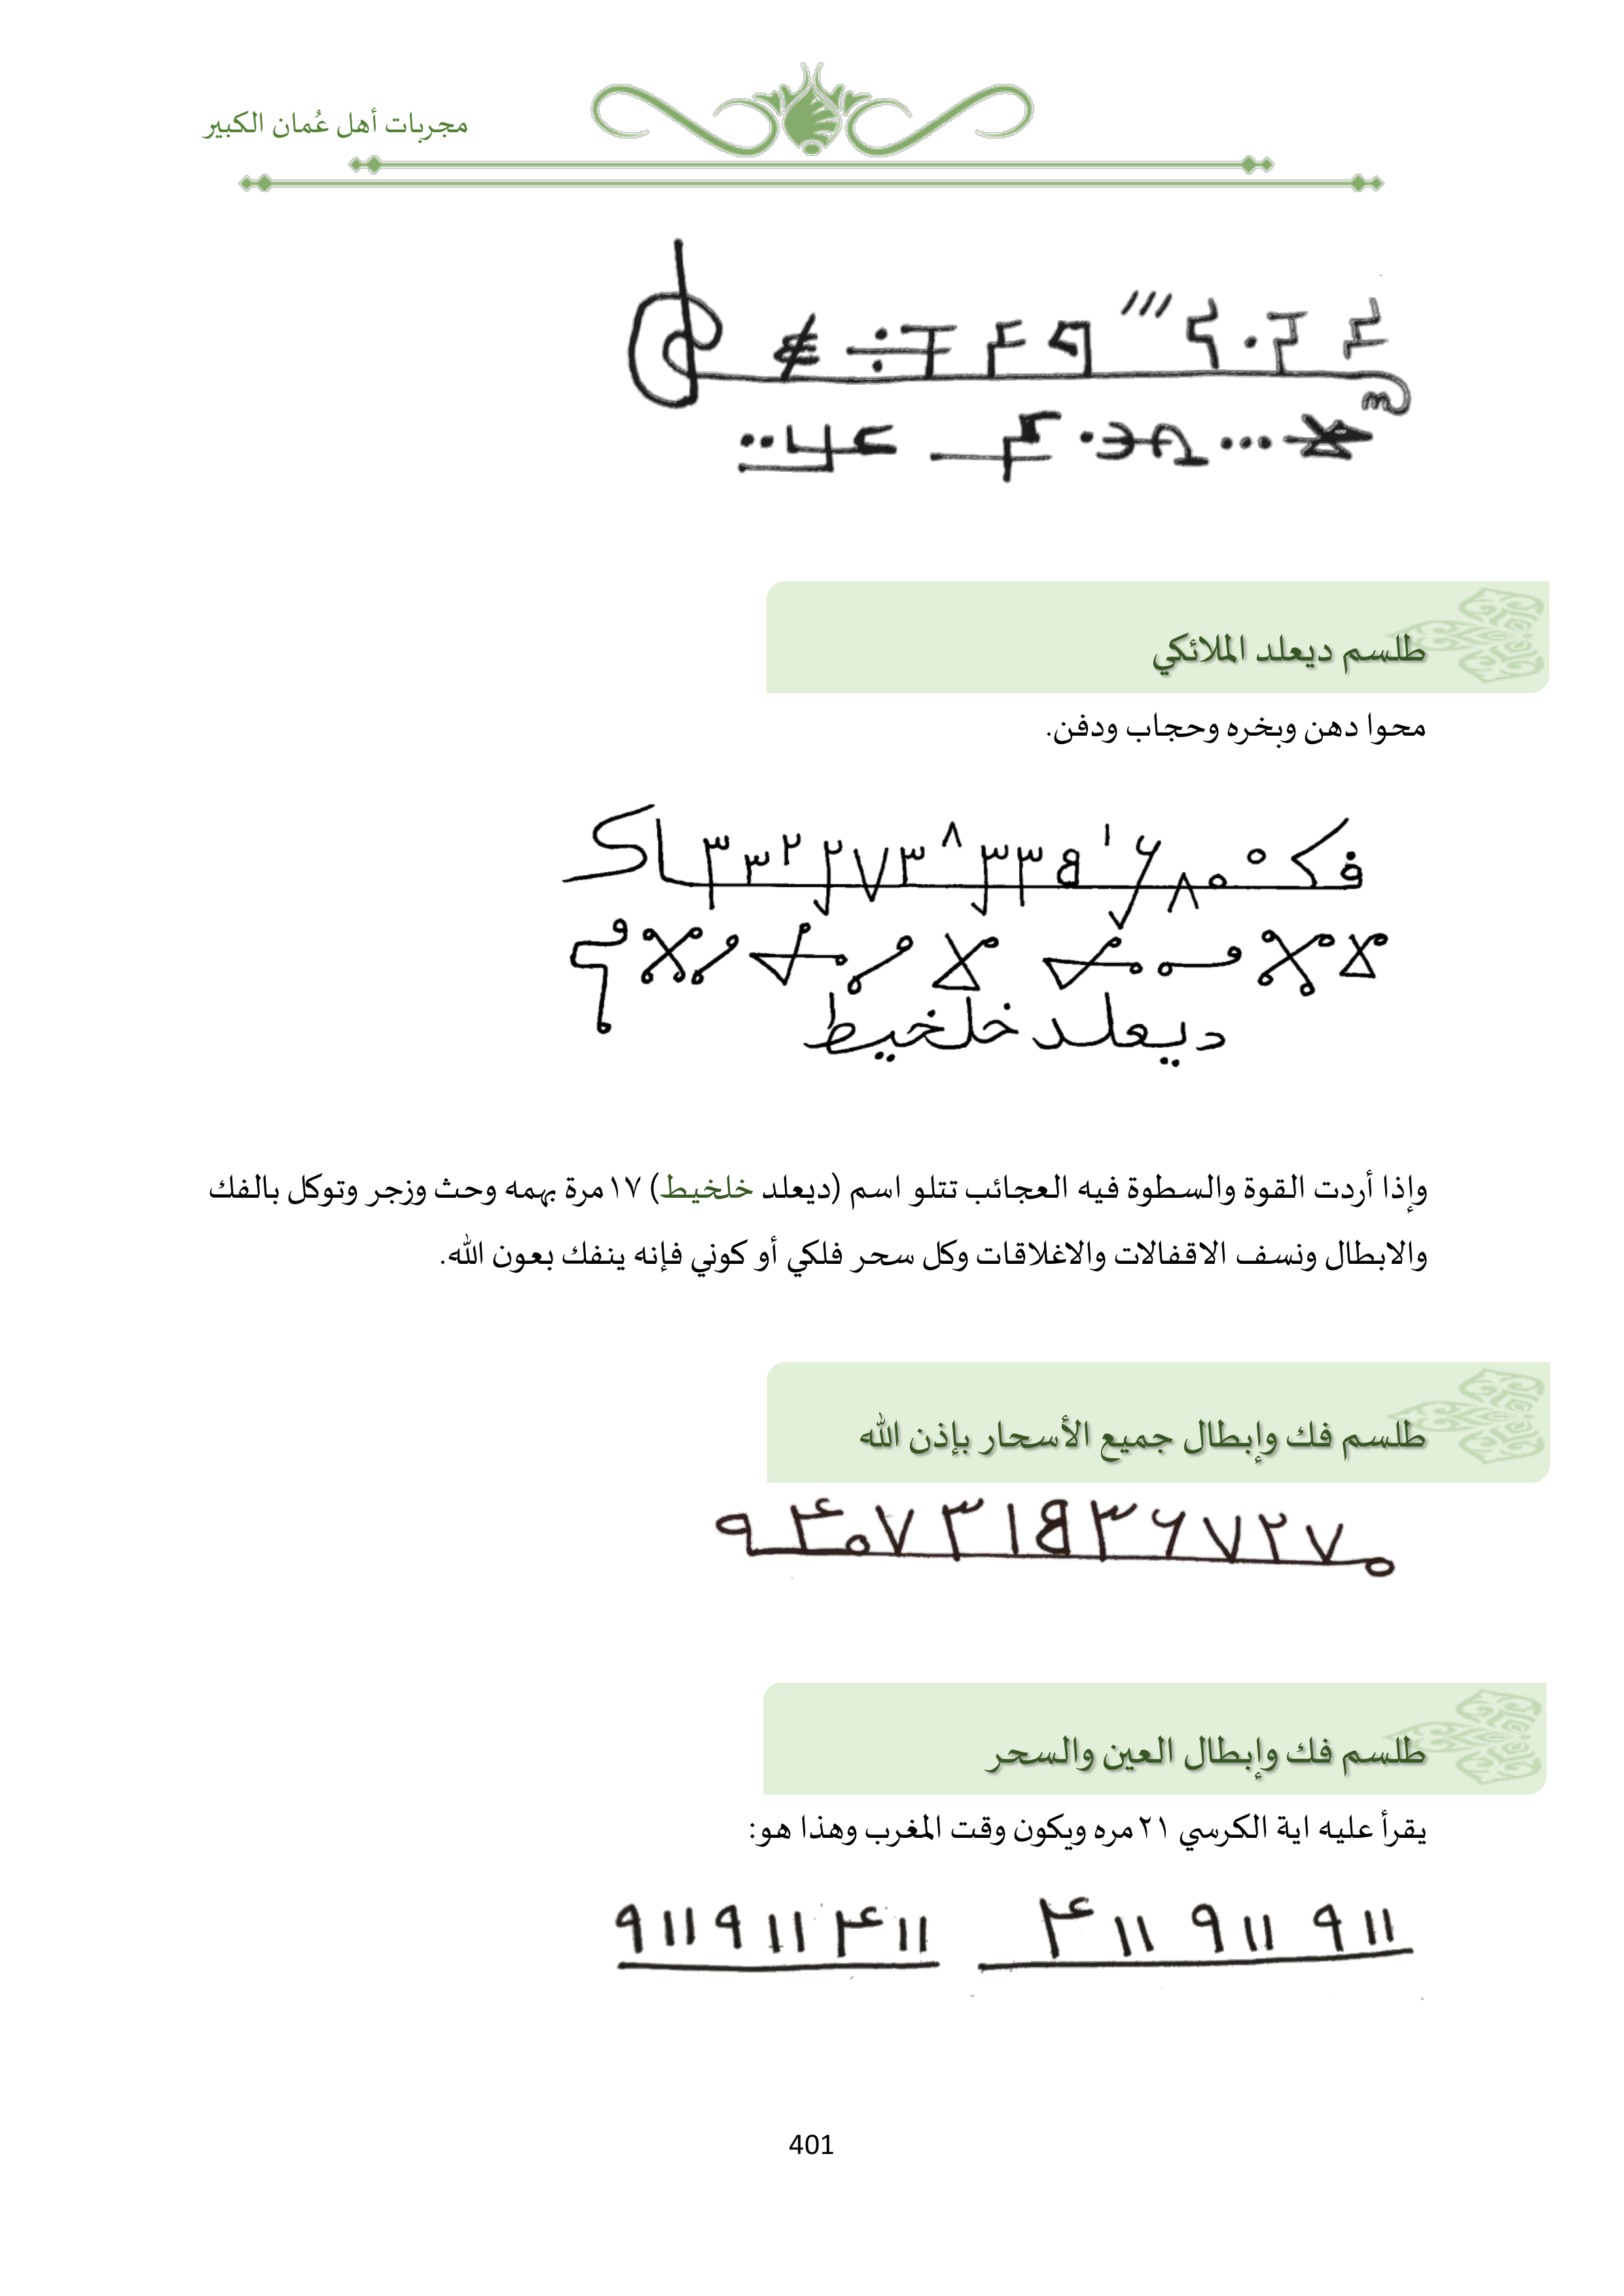 مجربات أهل عُمان الكبير
طلسم ديعلد الملائكي
محوا دهن وبخره وحجاب ودفن.
ديعلد خلخيط
وإذا أردت القوة والسطوة فيه العجائب تتلو اسم (ديعلد خلخيط) ١٧مرة بهمه وحث وزجر وتوكل بالفك
والابطال ونسف الاقفالات والاغلاقات وكل سحر فلكي أو كوني فإنه ينفك بعون الله.
طلسم فك وإبطال جميع الأسحار بإذن الله
طلسم فك وإبطال العين والسحر
يقرأ عليه اية الكرسي ٢١مره ويكون وقت المغرب وهذا هو:
401